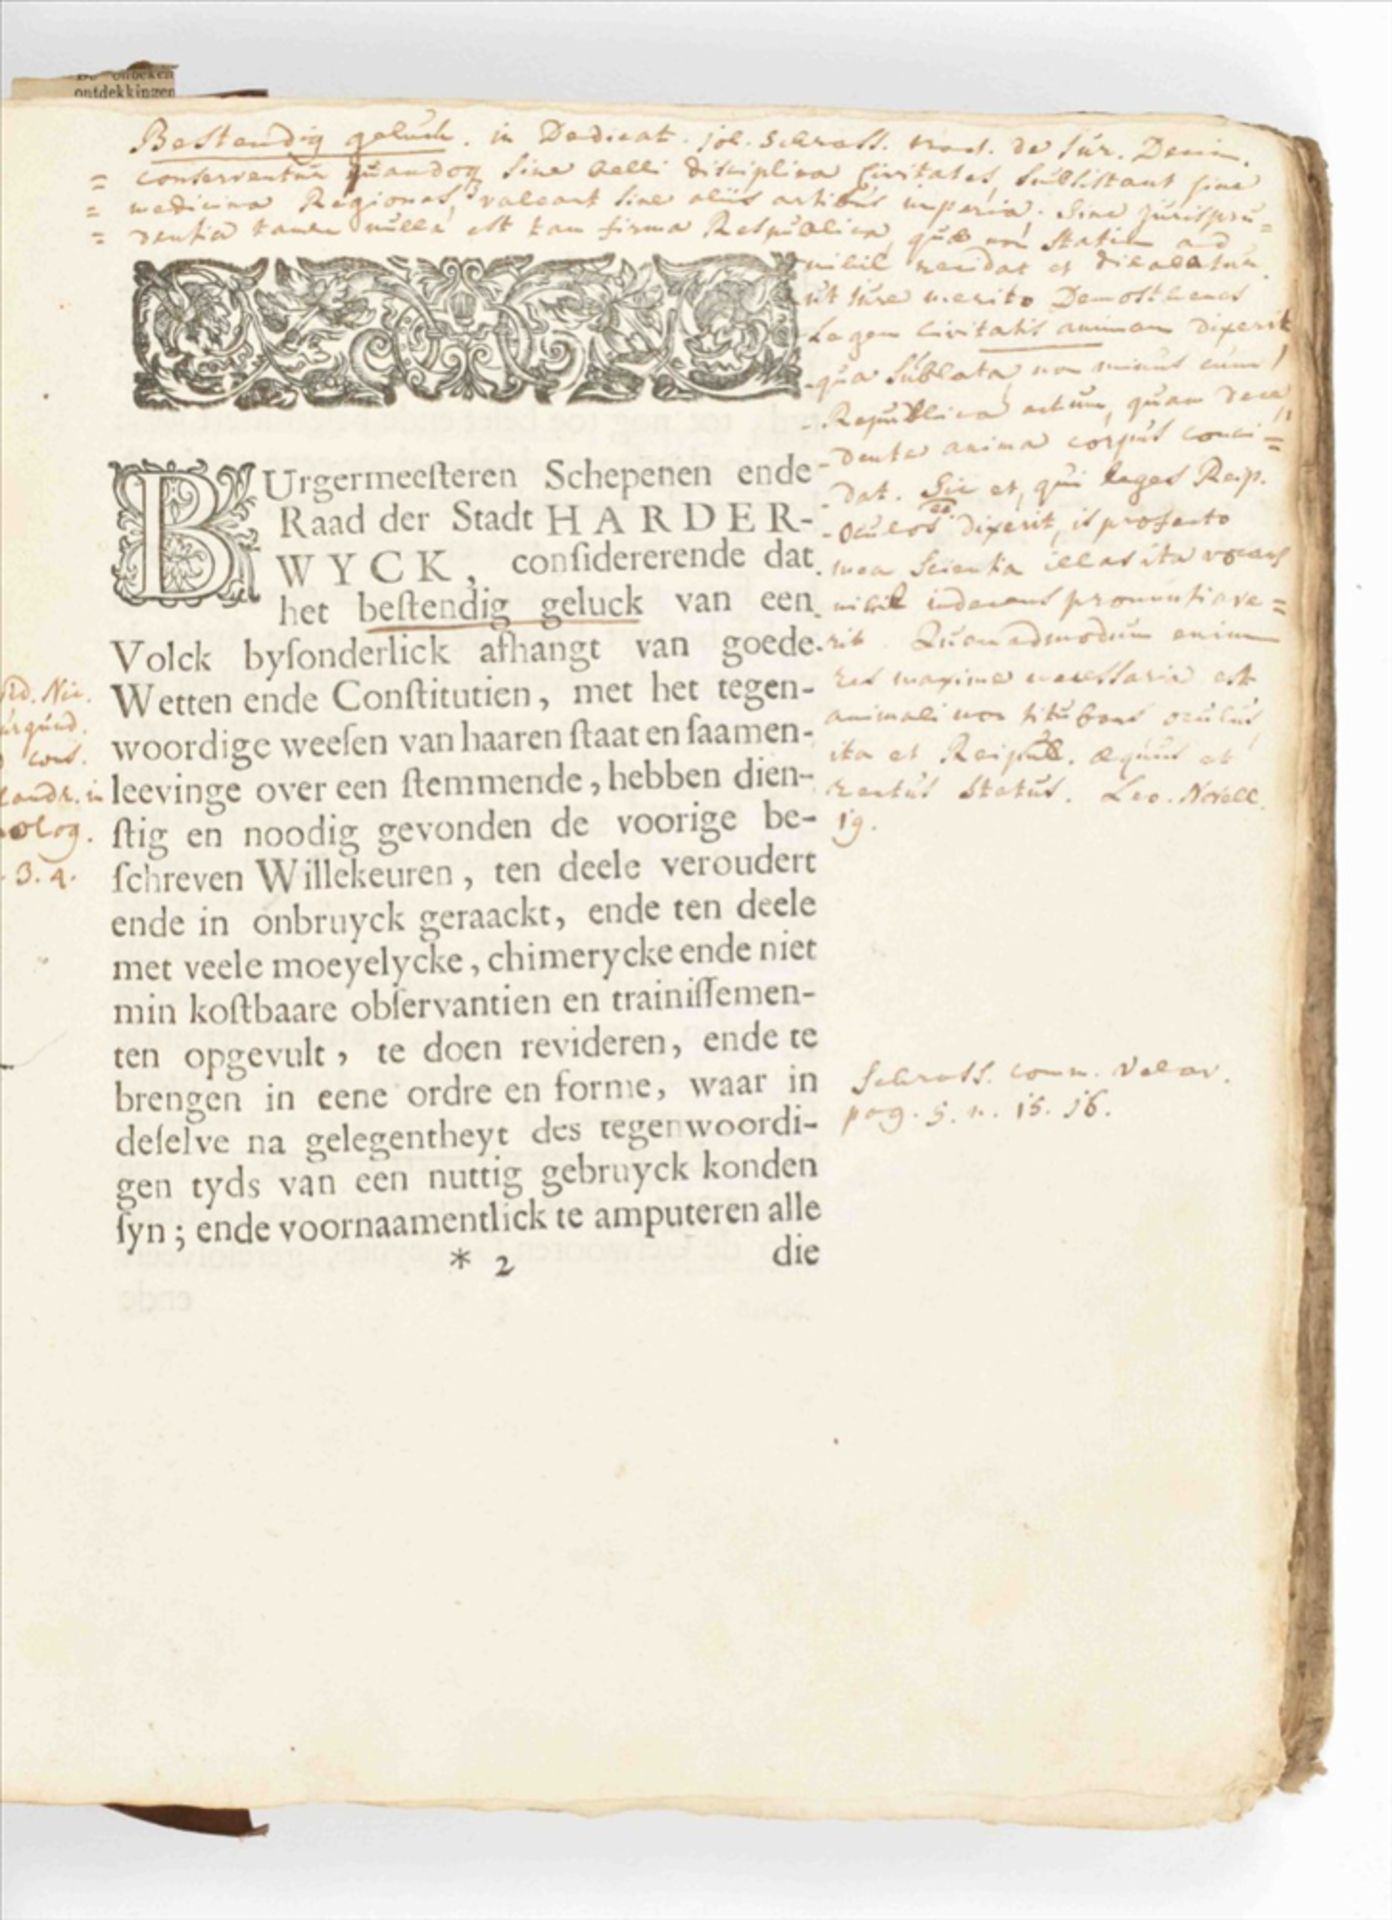 ontdekkingen
Bestendig geluck. in Dedicat. joh. Schrass. tract. de Jur. Decim.
conserventur quandoq sine belli disciplina Civitates, subsistant sine
medicina Regiones, valeant sine aliis artibus imperia. Sine jurispru=
dentia tamen nulla est tam firma Respublica, quæ non statim ad
nihil recidat et dilabatur
ut jure merito Demosthenes
Legem Civitatis animam dixerit
qua sublata, non minus cum
Republica actum, quam deca
dente anima corpus conci=
dat. Sic et, qui leges Reip.
oculos dixerit, is profecto
mea scientia illas ita vocans
nihil indecens pronuntiave=
rit. Quemadmodum enim
res maxime necessaria est
animali non titubans oculus,
ita et Reipubl. æquus et
rectus status. Leo. Novell.
19.
BUrgermeeſteren Schepenen ende
Raad der Stadt HARDER-
WYCK, conſidererende dat
het beſtendig geluck van een
Volck byſonderlick afhangt van goede
Wetten ende Conſtitutien, met het tegen-
woordige weeſen van haaren ſtaat en ſaamen-
leevinge over een ſtemmende, hebben dien-
ſtig en noodig gevonden de voorige be-
ſchreven Willekeuren, ten deele veroudert
ende in onbruyck geraackt, ende ten deele
met veele moeyelycke, chimerycke ende niet
min koſtbaare obſervantien en trainiſſemen-
ten opgevult, te doen revideren, ende te
brengen in eene ordre en forme, waar in
deſelve na gelegentheyt des tegenwoordi-
gen tyds van een nuttig gebruyck konden
ſyn; ende voornaamentlick te amputeren alle
* 2 die
Nic.
cons.
in
3. 4.
Schrass. com. Velav.
pag. 5. n. 15. 16.